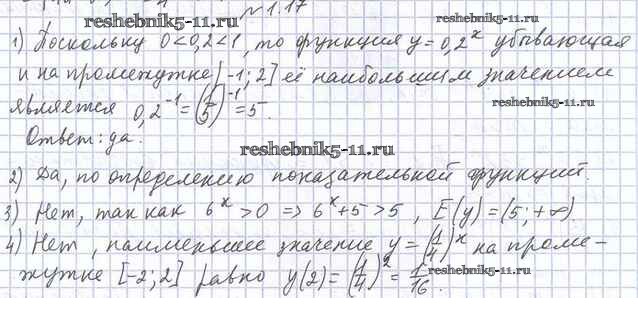 №1.17
reshebnik5-11.ru
1) Поскольку 0<0,2<1, то функция y=0,2^x убывающая
и на промежутке [-1; 2] её наибольшим значением
является 0,2^-1=(1/5)^-1=5.
reshebnik5-11.ru
Ответ: да.
reshebnik5-11.ru
2) Да, по определению показательной функций.
3) Нет, так как 6^x>0 => 6^x+5>5, E(y)=(5;+∞)
4) Нет, наименьшее значение y=(1/4)^x на проме-
жутке [-2; 2] равно y(2)=(1/4)^2=1/16.
reshebnik5-11.ru
reshebnik5-11.ru